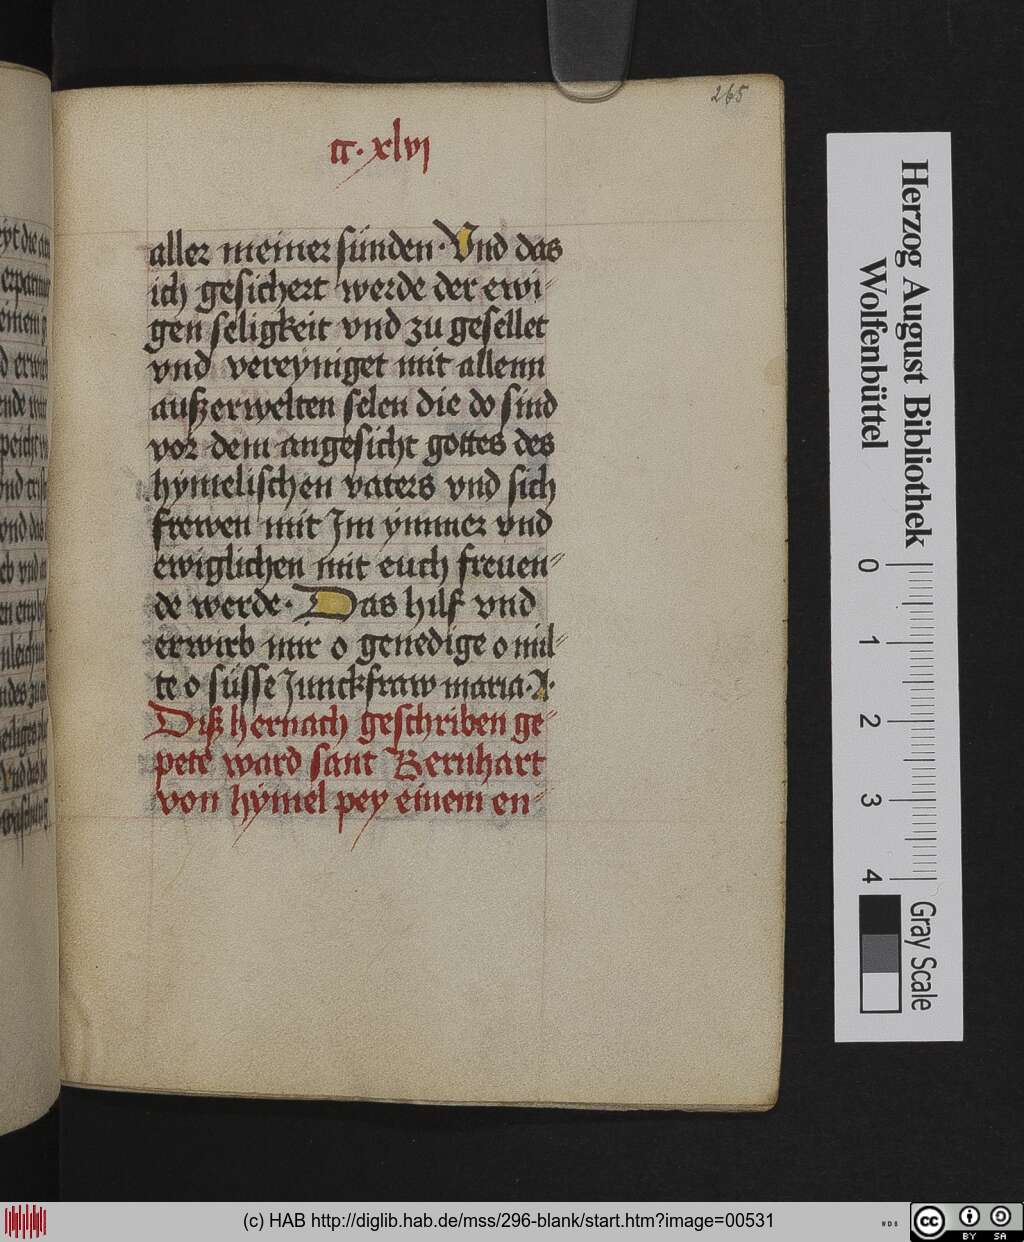 265
cc·xlvi
aller meiner sünden· Vnd das
ich gesichert werde der ewi-
gen seligkeit vnd zu gesellet
vnd vereyniget mit allenn
außerwelten selen die do sind
vor dem angesicht gottes des
hymelischen vaters vnd sich
frewen mit Jm ymmer vnd
ewiglichen mit euch freuen-
de werde· Das hilf vnd
erwirb mir o genedige o mil-
te o süsse Junckfraw maria· A·
Diß hernach geschriben ge-
pete ward sant Bernhart
von hymel pey einem en-
Herzog August Bibliothek
Wolfenbüttel
0 1 2 3 4
Gray Scale
(c) HAB http://diglib.hab.de/mss/296-blank/start.htm?image=00531
cc BY SA